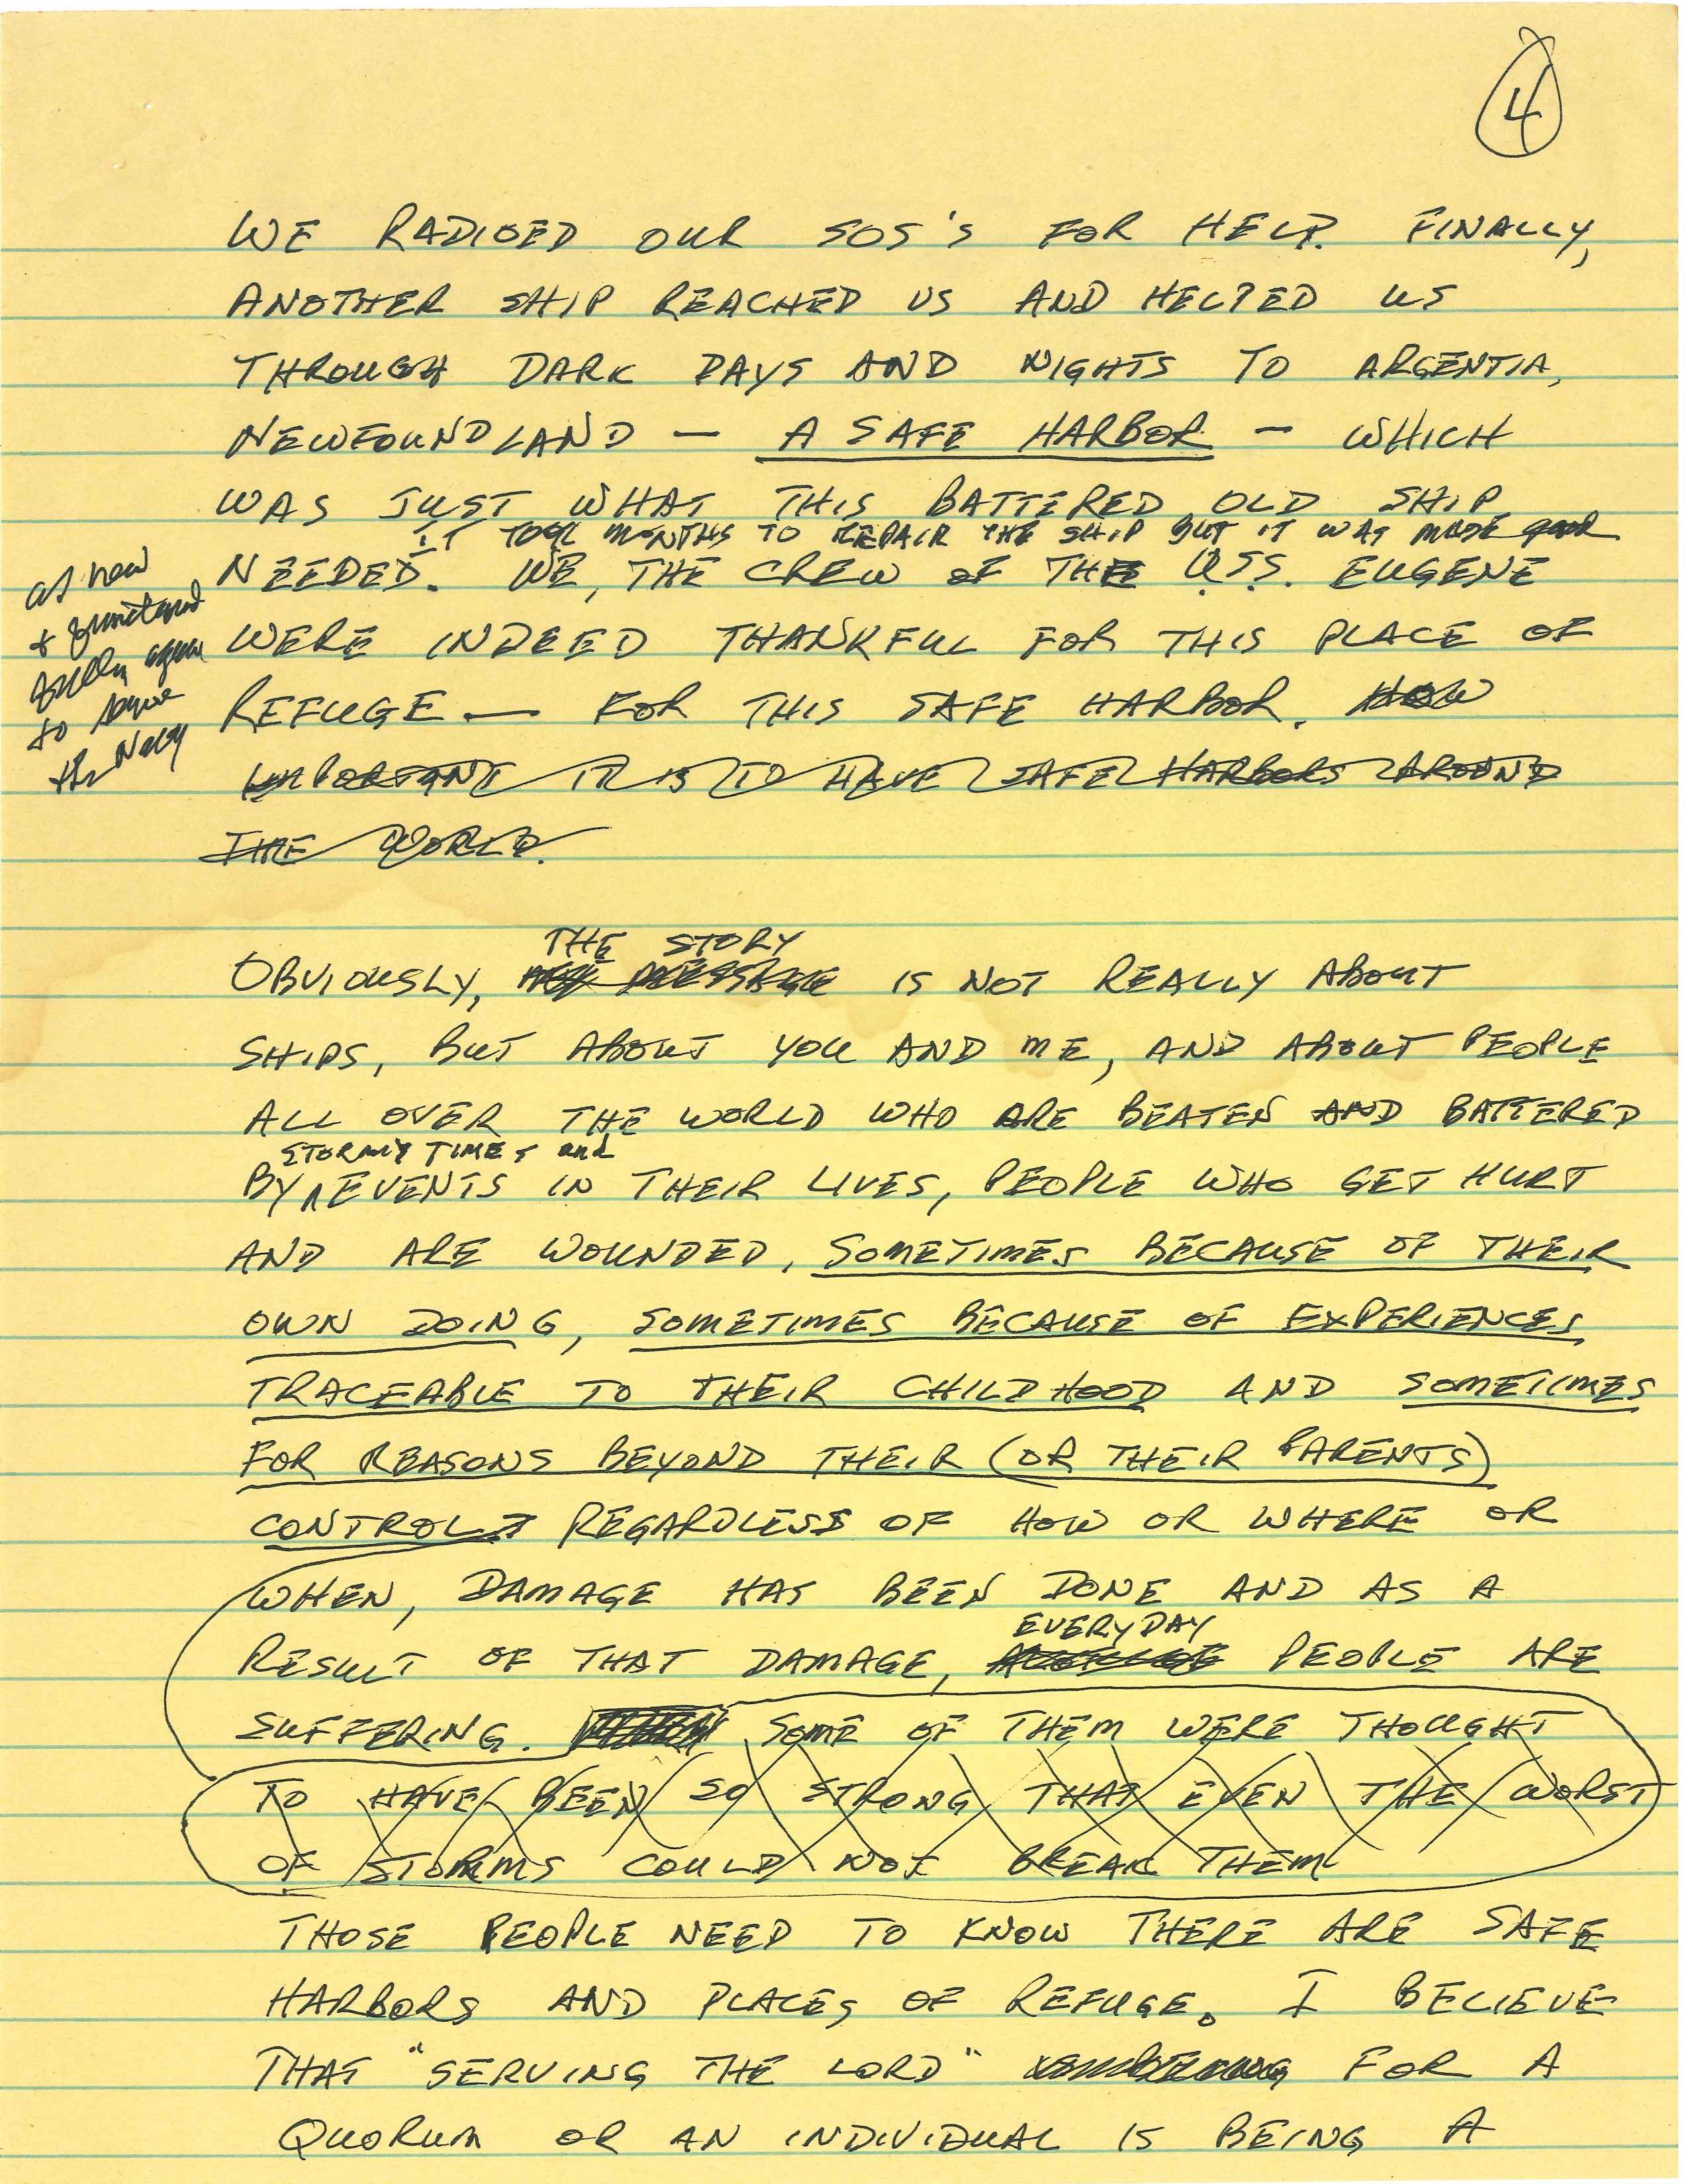 4
WE RADIOED OUR SOS'S FOR HELP. FINALLY,
ANOTHER SHIP REACHED US AND HELPED US
THROUGH DARK DAYS AND NIGHTS TO ARGENTIA,
NEWFOUNDLAND — A SAFE HARBOR — WHICH
WAS JUST WHAT THIS BATTERED OLD SHIP
IT TOOK MONTHS TO REPAIR THE SHIP BUT IT WAS MADE good
as new
+ functioned
fully again
to serve
the Navy
NEEDED. WE, THE CREW OF THE U.S.S. EUGENE
WERE INDEED THANKFUL FOR THIS PLACE OF
REFUGE — FOR THIS SAFE HARBOR. HOW
IMPORTANT IT IS TO HAVE SAFE HARBORS AROUND
THE WORLD.
THE STORY
OBVIOUSLY, MESSAGE IS NOT REALLY ABOUT
SHIPS, BUT ABOUT YOU AND ME, AND ABOUT PEOPLE
ALL OVER THE WORLD WHO ARE BEATEN AND BATTERED
STORMY TIMES and
BY EVENTS IN THEIR LIVES, PEOPLE WHO GET HURT
AND ARE WOUNDED, SOMETIMES BECAUSE OF THEIR
OWN DOING, SOMETIMES BECAUSE OF EXPERIENCES
TRACEABLE TO THEIR CHILDHOOD AND SOMETIMES
FOR REASONS BEYOND THEIR (OR THEIR PARENTS)
CONTROL. REGARDLESS OF HOW OR WHERE OR
WHEN, DAMAGE HAS BEEN DONE AND AS A
EVERYDAY
RESULT OF THAT DAMAGE, PEOPLE ARE
SUFFERING. SOME OF THEM WERE THOUGHT
TO HAVE BEEN SO STRONG THAT EVEN THE WORST
OF STORMS COULD NOT BREAK THEM
THOSE PEOPLE NEED TO KNOW THERE ARE SAFE
HARBORS AND PLACES OF REFUGE. I BELIEVE
THAT "SERVING THE LORD" FOR A
QUORUM OR AN INDIVIDUAL IS BEING A